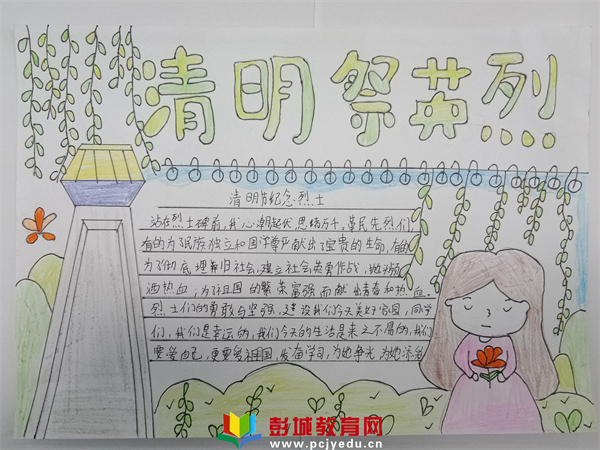 清明祭英烈
清明节纪念烈士
站在烈士碑前,我心潮起伏,思绪万千,革民先烈们,
有的为了民族独立和国家尊严献出了宝贵的生命,有的
为了彻底埋葬旧社会,建立社会英勇作战,抛头颅
洒热血;为了祖国的繁荣富强而献出青春和热血。
烈士们的勇敢与坚强,建设我们今天美好家园,同学
们,我们是幸运的,我们今天的生活是来之不易的,我们
要爱自己,更要爱祖国,发奋学习,为她争光,为她添彩
彭城教育网
www.pcjyedu.cn